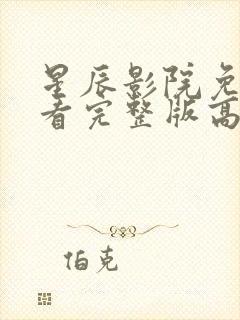 星辰影院免
看完整版高
伯克